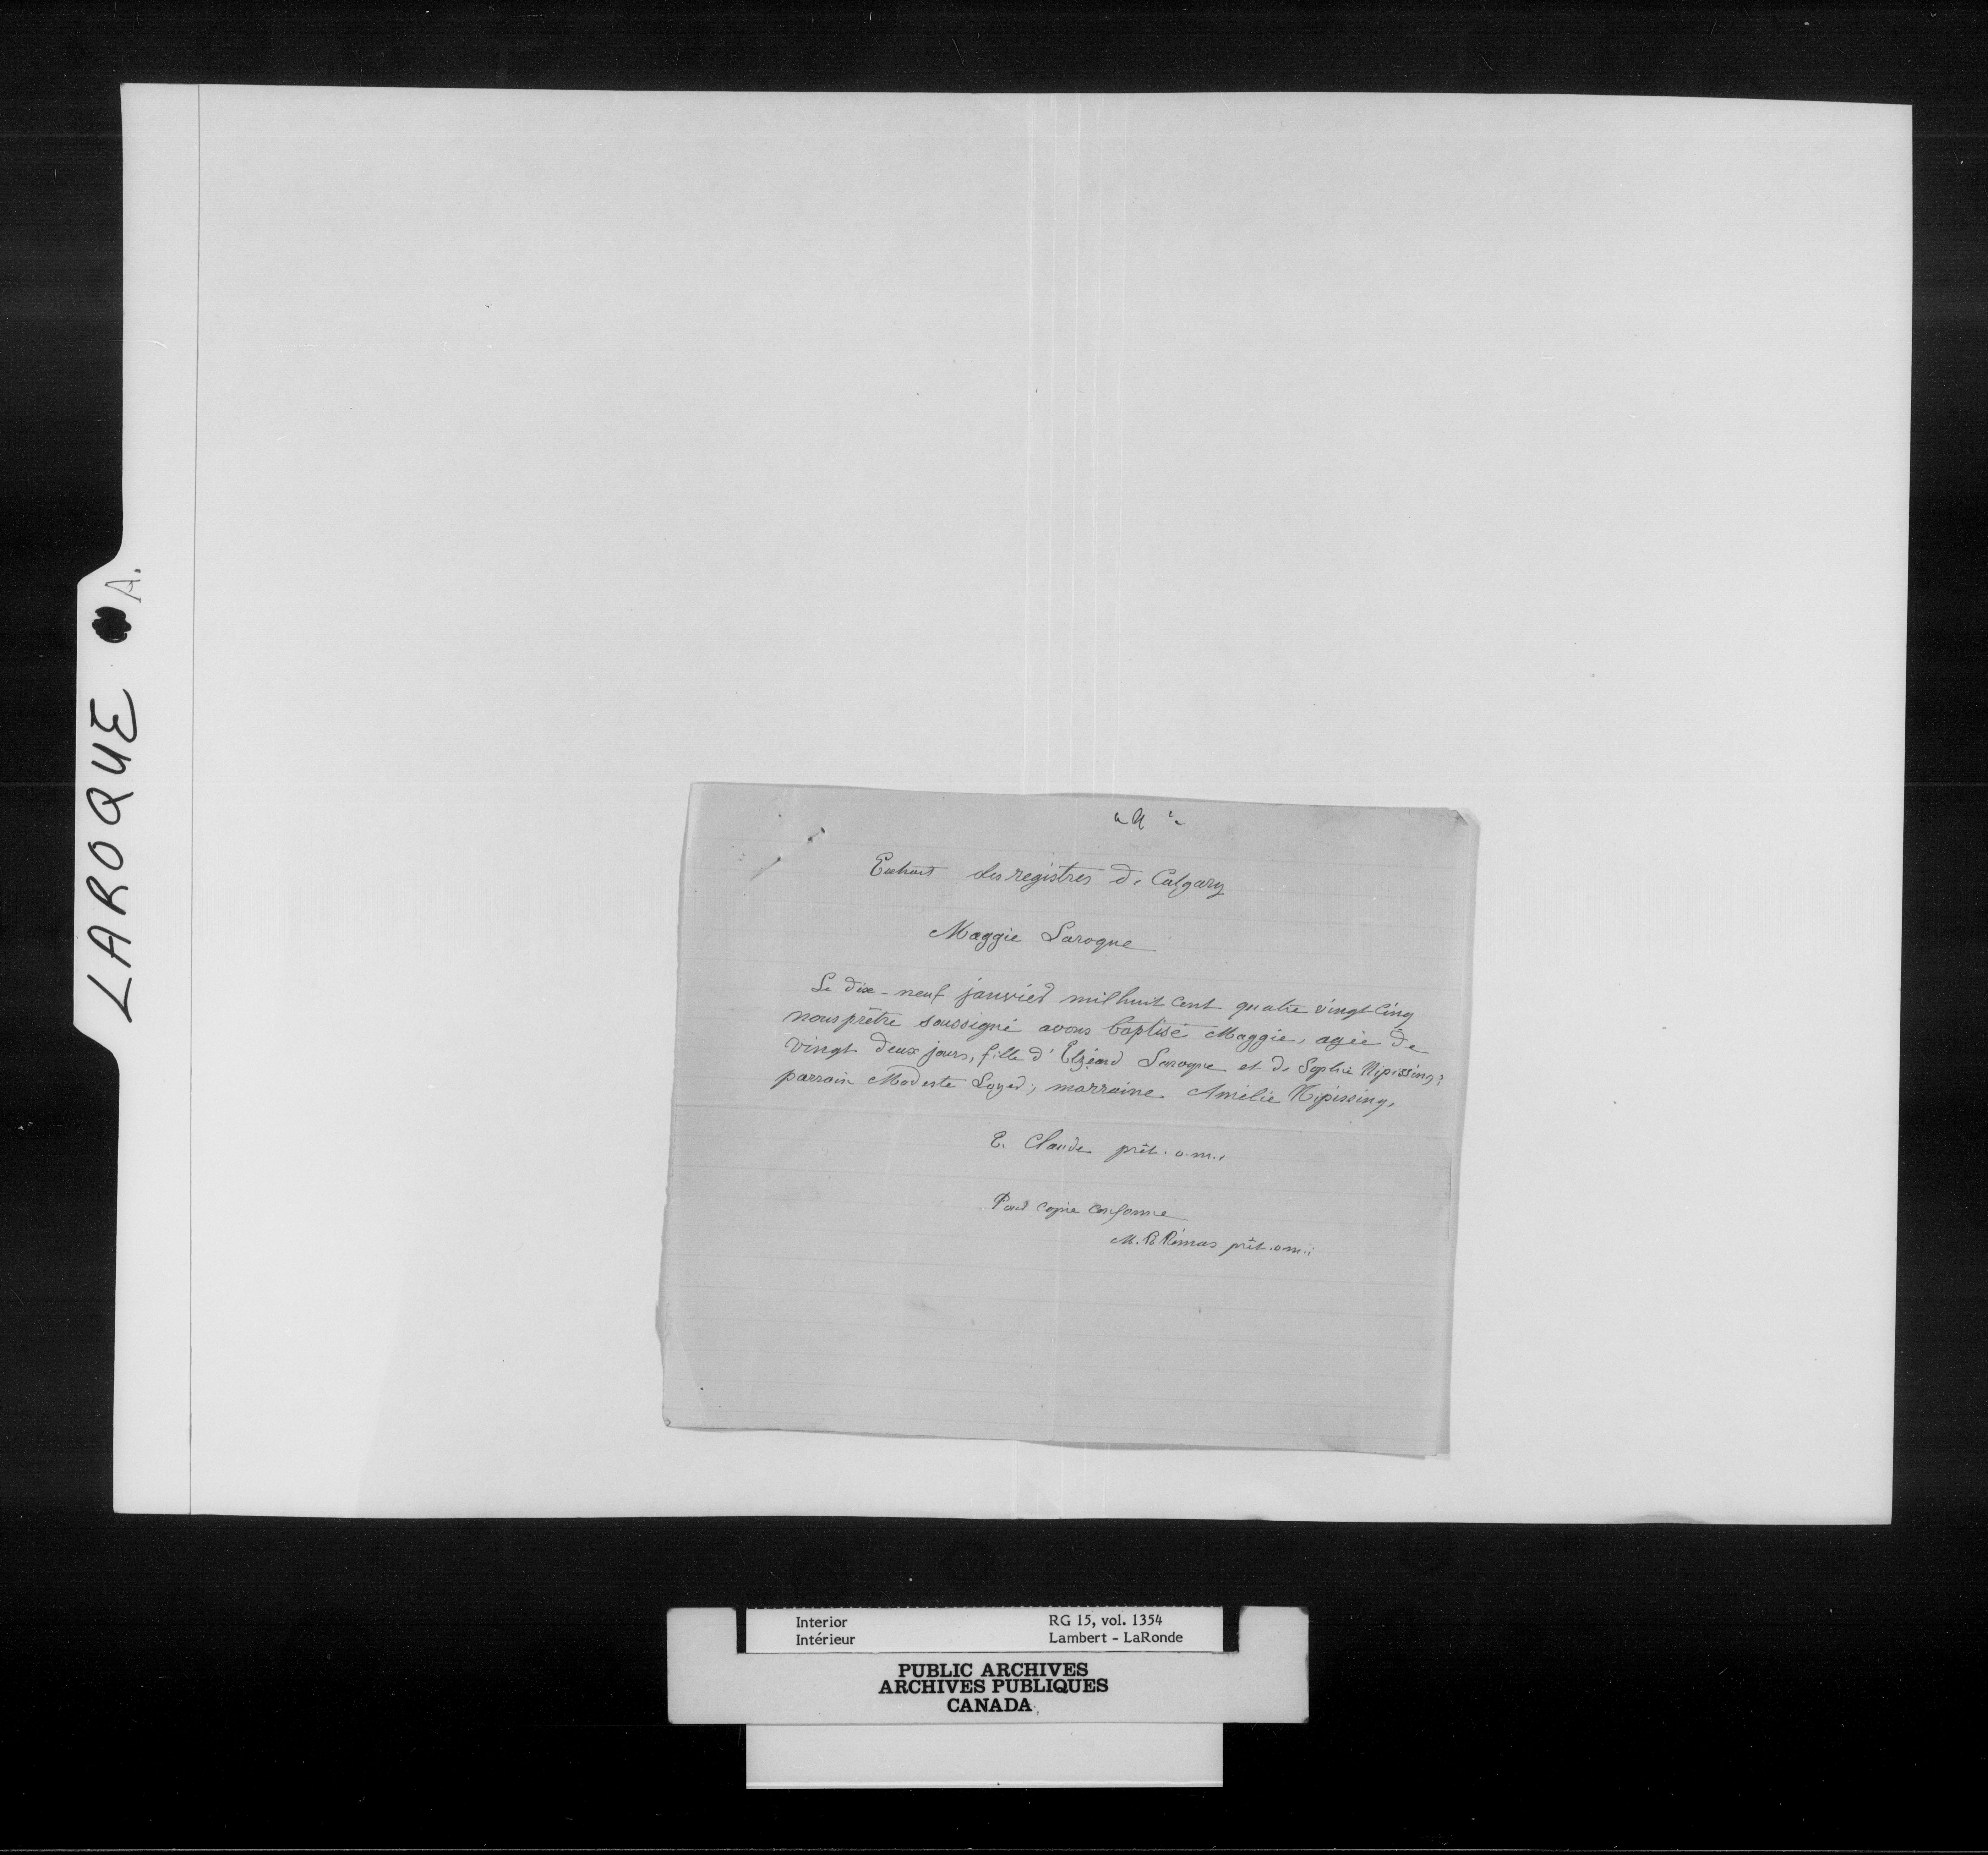 LAROQUE A.
Extrait des registres de Calgary
Maggie Laroque
Le dix-neuf janvier mil huit cent quatre vingt cinq
nous prêtre soussigné avons baptisé Maggie, agée de
vingt deux jours, fille d'Elzéard Laroque et de Sophie Nipissing;
parrain Modeste ; marraine Amélie Nipissing,
E. Claude prêt. o.m.i
Pour copie conforme
M. Rémas prêt. o.m.i
Interior
Intérieur
RG 15, vol. 1354
Lambert - LaRonde
PUBLIC ARCHIVES
ARCHIVES PUBLIQUES
CANADA